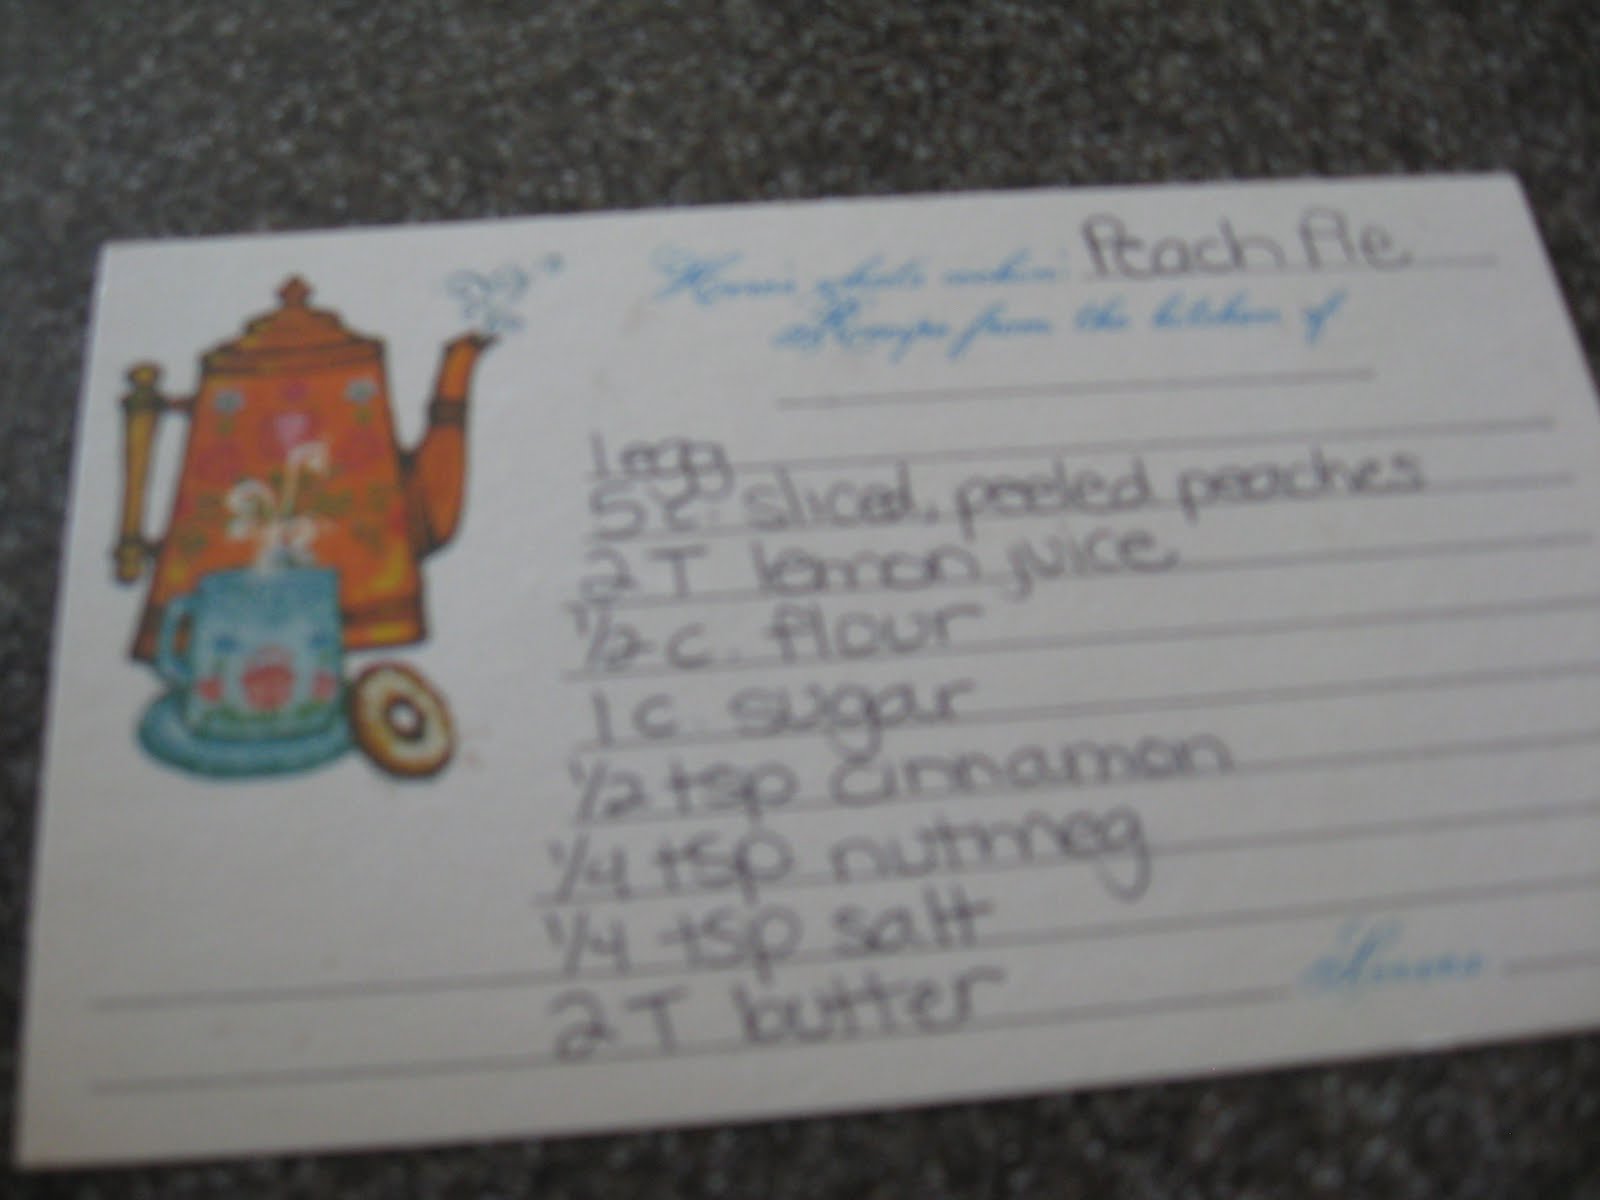 Here's what's cookin' Peach Pie
Recipe from the kitchen of
1 egg
5 c. sliced, peeled peaches
2 T lemon juice
1/2 c. flour
1 c. sugar
1/2 tsp cinnamon
1/4 tsp nutmeg
1/4 tsp salt
2 T butter